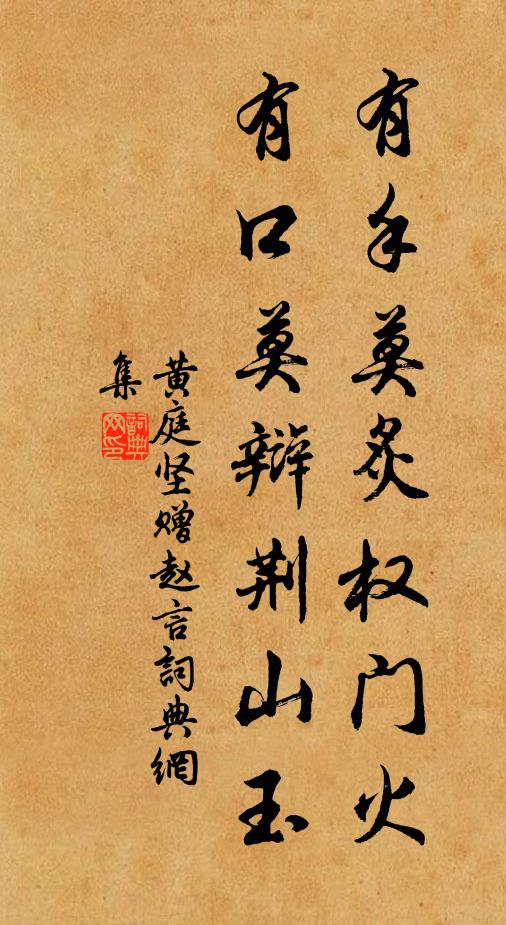 有手莫炙权门火
有口莫辩荆山玉
黄庭坚赠赵言詞典網
集
詞典网印